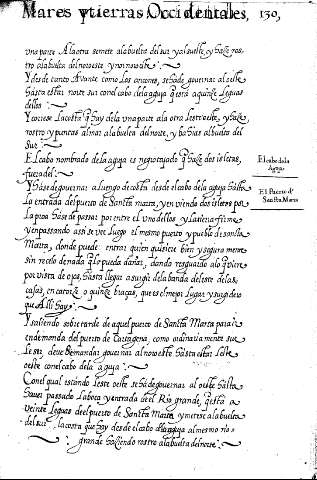 Mares y tierras Occidentales, 130,
una parte A la otra se mete a la buelta del sur y a la suelte, y haze ros-
tro a la buelta del noroeste y nornoroeste:~
Y desde tanto Avante como los ancones, se ha de governar al oeste
hasta estar norte sur con el cabo de la aguja questa a quinze leguas
dellos:~
Y correse la costa que hay de la una parte a la otra leste oeste, y haze
rostro y puntas al mar a la buelta del norte, y bahias a la buelta del
Sur:~
El cabo nombrado de la aguja es negro tajado que haze dos isletas,
fuera del:~
El cabo de la
Aguja.
Y ha se de governar a luengo de costa desde el cabo de la aguja hasta
la entrada del puerto de Santta marta, y en viendo dos isletas por
El Puerto de
Santta Marta
la proa ha se de passar por entre el uno dellos y la tierra firme
y en passando assi se vee luego el mismo puerto y pueblo de santta
Marta, donde puede entrar quien quisiere bien y segura mente
Sin recelo de nada que le pueda dañar, dando resguardo a lo que viere
por vista de ojos, hasta llegar a surgir de la banda del este de las
casas, en catorze o quinze braças, que es el mejor lugar y surgidero
que Alli hay:~
Y saliendo sobre tarde de aquel puerto de Santta Marta para ir
en demanda del puerto de Cartagena, como ordinaria mente sue
le ser, deve de mandar governar al noroeste hasta estar leste
oeste con el cabo de la aguja:~
Con el qual estando leste oeste se ha de governar al oeste hasta
haver passado la boca y entrada del Rio grande, questa a
veinte leguas del puerto de Santta Marta y metese a la buelta
del sur, la costa que hay desde el cabo de la aguja al mesmo rio
grande haziendo rostro a la buelta del norte:~